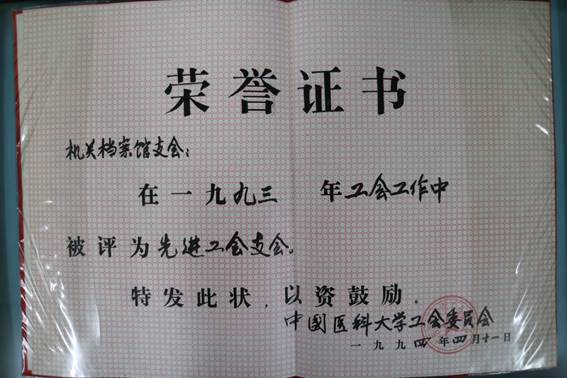 荣誉证书
机关档案馆支会:
在一九九三 年工会工作中
被评为先进工会支会。
特发此状，以资鼓励。
中國医科大学工会委员会
一九九四年四月十一日